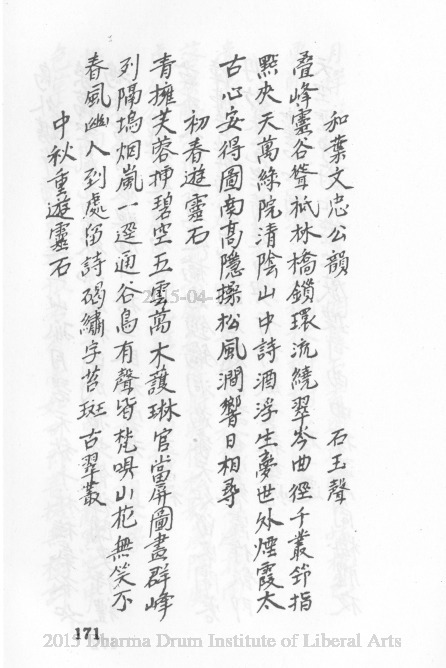 和葉文忠公韻　石玉聲
疊峰靈谷聳祇林橋鎖環流繞翠岑曲徑千叢筇指
點夾天萬綠院清陰山中詩酒浮生夢世外煙霞太
古心安得圖南高隱操松風澗響日相尋
初春遊靈石
青擁芙蓉挿碧空五雲萬木護琳宮當屏圖畫群峰
列隔塢烟嵐一逕通谷鳥有聲皆梵唄山花無笑不
春風幽人到處留詩碣繡字苔斑古翠叢
中秋重遊靈石
171
2015-04-
2015 Dharma Drum Institute of Liberal Arts